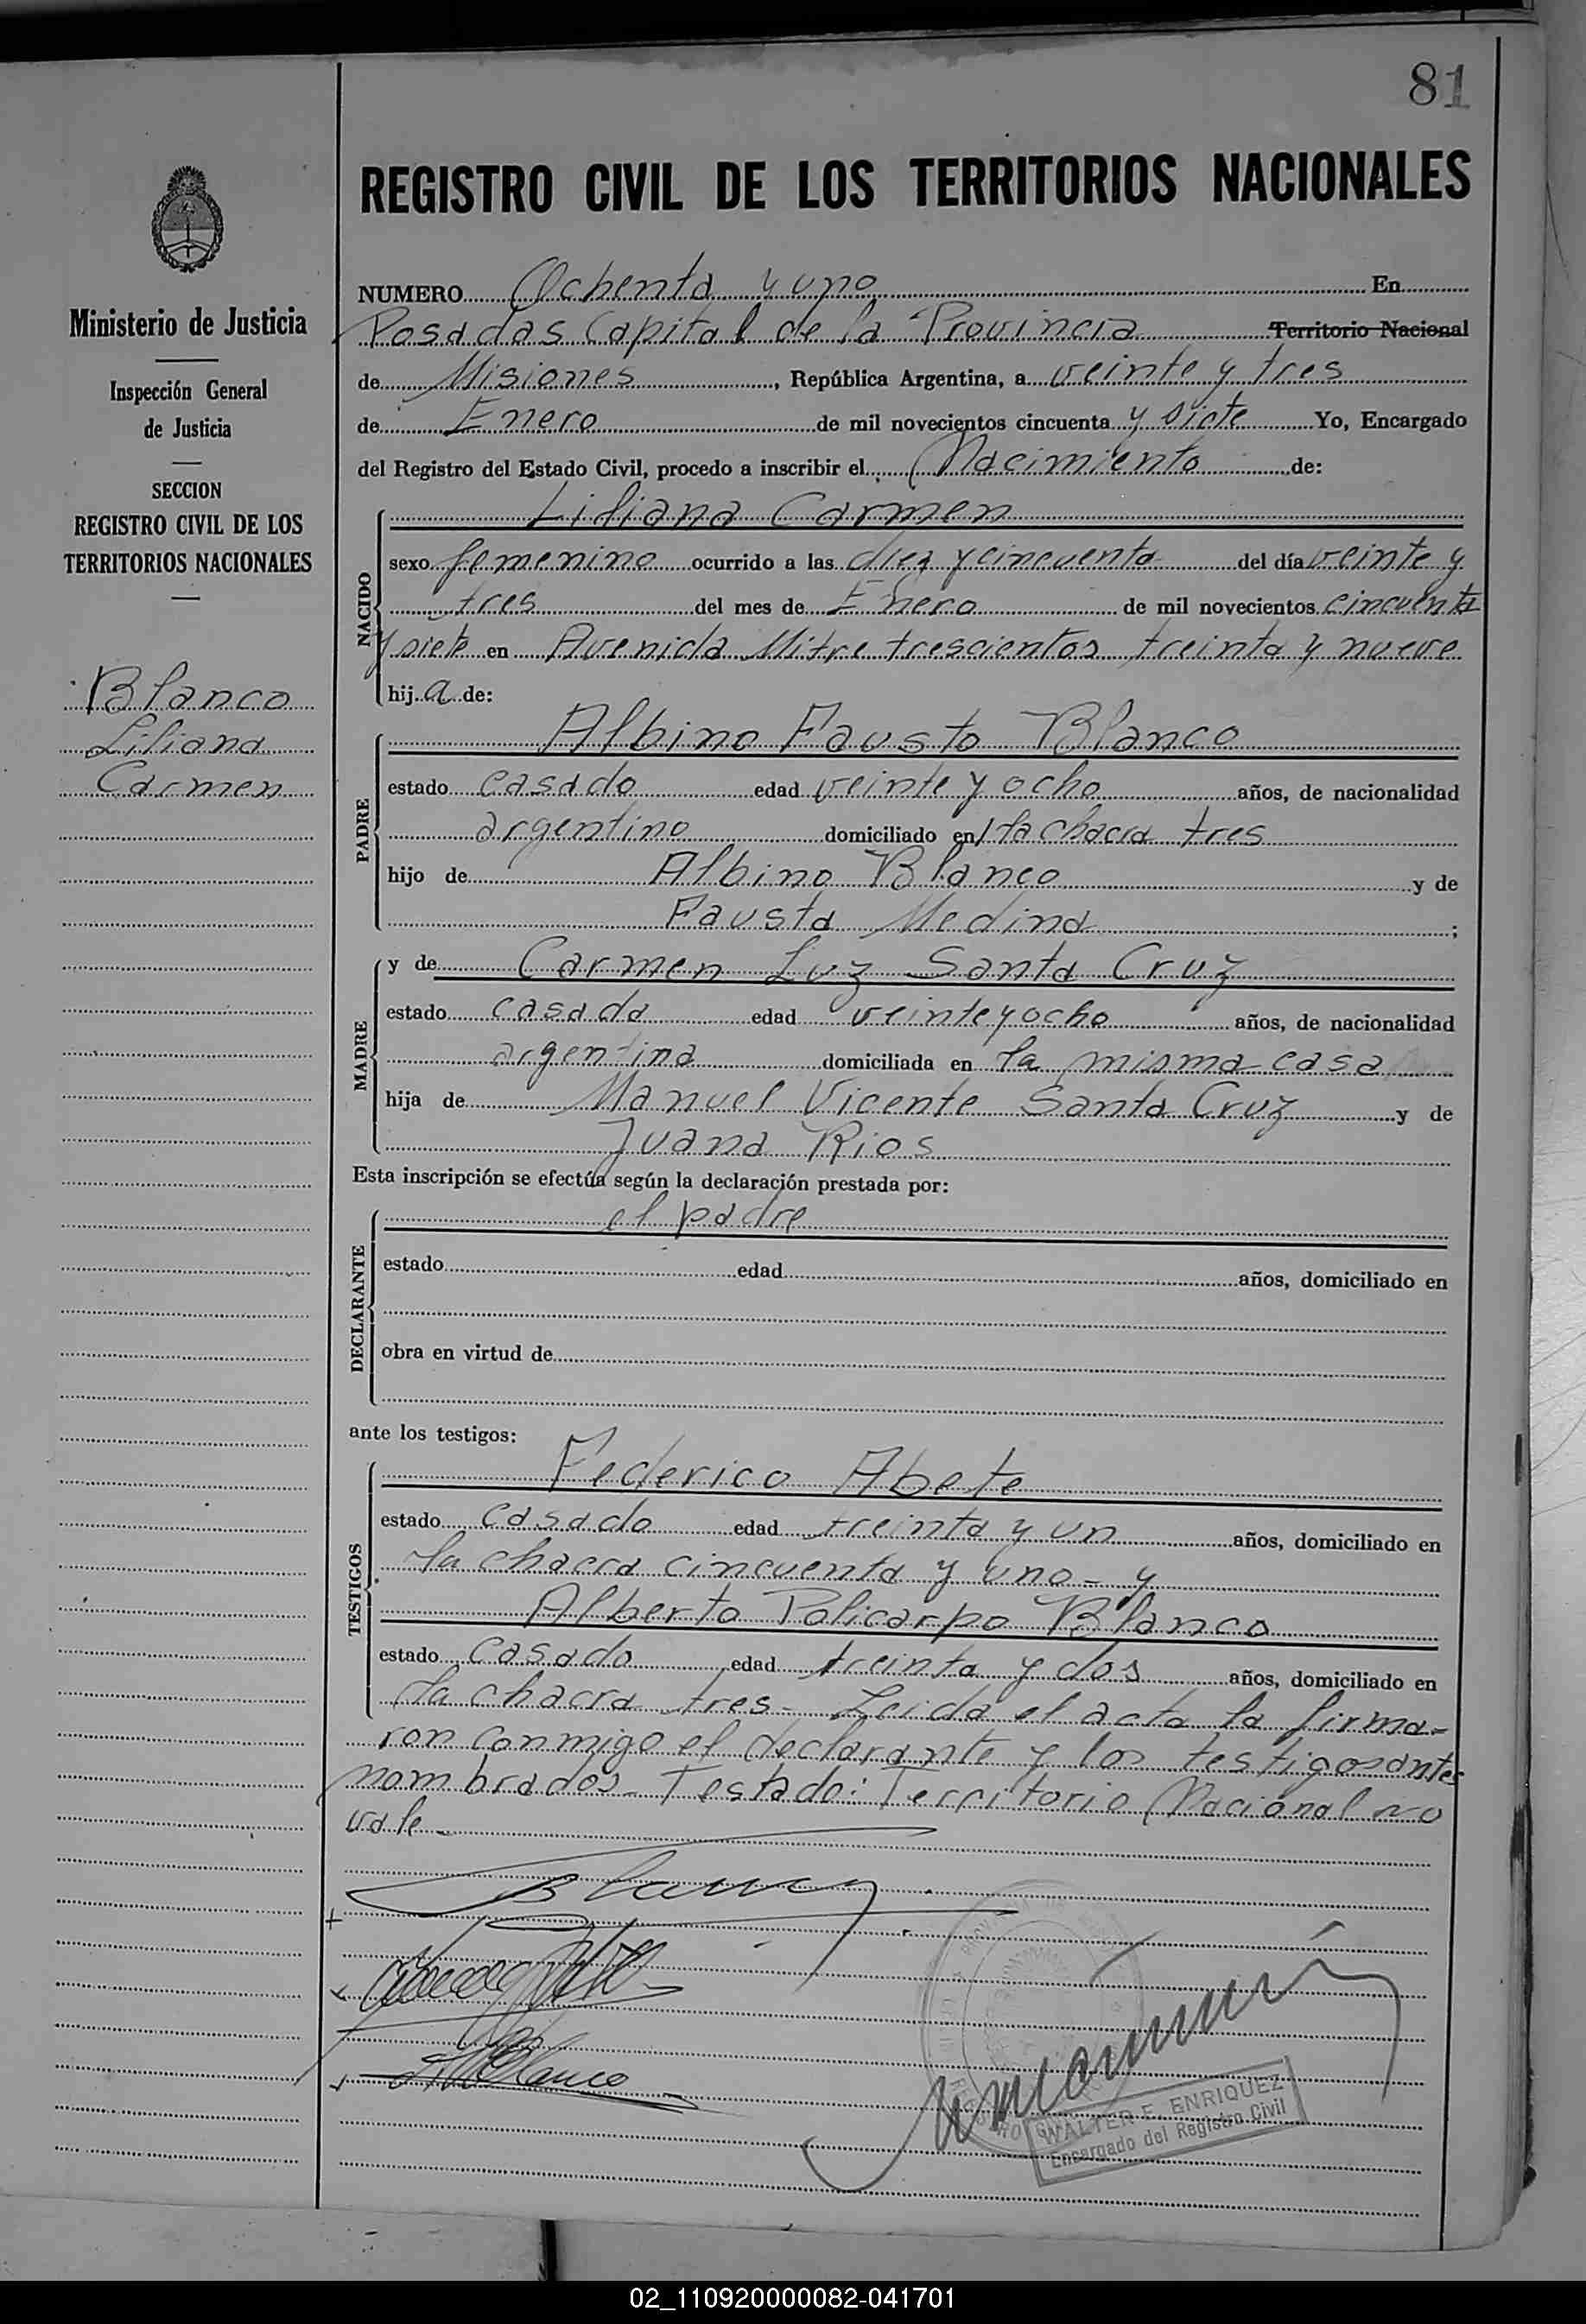 81
REGISTRO CIVIL DE LOS TERRITORIOS NACIONALES
Ministerio de Justicia
Inspección General
de Justicia
SECCION
REGISTRO CIVIL DE LOS
TERRITORIOS NACIONALES
Blanco
Liliana
Carmen
NUMERO Ochenta y uno En
Posadas Capital de la Provincia Territorio Nacional
de Misiones, República Argentina, a veinte y tres
de Enero de mil novecientos cincuenta y siete Yo, Encargado
del Registro del Estado Civil, procedo a inscribir el Nacimiento de:
NACIDO
Liliana Carmen
sexo femenino ocurrido a las diez y cincuenta del día veinte y
tres del mes de Enero de mil novecientos cincuenta
y siete en Avenida Mitre trescientos treinta y nueve
hija de:
PADRE
Albino Fausto Blanco
estado casado edad veinte y ocho años, de nacionalidad
argentino domiciliado en la chacra tres
hijo de Albino Blanco y de
Fausta Medina;
MADRE
y de Carmen Luz Santa Cruz
estado casada edad veinte y ocho años, de nacionalidad
argentina domiciliada en la misma casa
hija de Manuel Vicente Santa Cruz y de
Juana Rios
Esta inscripción se efectúa según la declaración prestada por:
DECLARANTE
el padre
estado edad años, domiciliado en
obra en virtud de
ante los testigos:
TESTIGOS
Federico Abete
estado casado edad treinta y un años, domiciliado en
la chacra cincuenta y uno - y
Alberto Policarpo Blanco
estado casado edad treinta y dos años, domiciliado en
la chacra tres - Leida el acta la firma-
ron conmigo el declarante y los testigos antes
nombrados - Testado: Territorio Nacional no
vale -
Blanco
Blanco
WALTER E. ENRIQUEZ
Encargado del Registro Civil
02_110920000082-041701